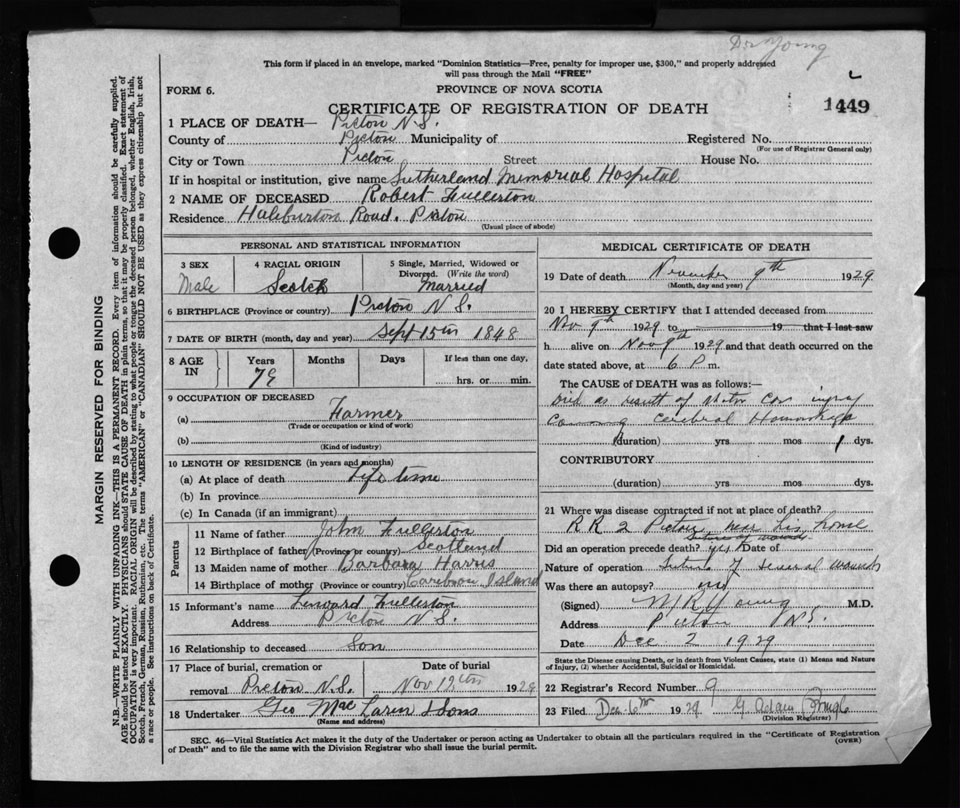 Dr Young
This form if placed in an envelope, marked "Dominion Statistics—Free, penalty for improper use, $300," and properly addressed
will pass through the Mail "FREE"
FORM 6.
PROVINCE OF NOVA SCOTIA
1449
CERTIFICATE OF REGISTRATION OF DEATH
1 PLACE OF DEATH— Pictou N.S.
County of Pictou Municipality of Registered No.
(For use of Registrar General only)
City or Town Pictou Street House No.
If in hospital or institution, give name Sutherland Memorial Hospital
2 NAME OF DECEASED Robert Fullerton
Residence Haliburton Road. Pictou
(Usual place of abode)
PERSONAL AND STATISTICAL INFORMATION
3 SEX
Male
4 RACIAL ORIGIN
Scotch
5 Single, Married, Widowed or
Divorced. (Write the word)
Married
6 BIRTHPLACE (Province or country) Pictou N.S.
7 DATE OF BIRTH (month, day and year) Sept 15th 1848
8 AGE
IN
Years
Months
Days
If less than one day,
hrs. or min.
9 OCCUPATION OF DECEASED
(a) Farmer
(Trade or occupation or kind of work)
(b)
(Kind of industry)
10 LENGTH OF RESIDENCE (in years and months)
(a) At place of death Life time
(b) In province
(c) In Canada (if an immigrant)
Parents
11 Name of father John Fullerton
12 Birthplace of father (Province or country) Scotland
13 Maiden name of mother Barbara Harris
14 Birthplace of mother (Province or country) Caribou Island
15 Informant's name Fullerton
Address Pictou N.S.
16 Relationship to deceased Son
17 Place of burial, cremation or
removal Pictou N.S.
Date of burial
Nov 12th 1929
18 Undertaker Geo MacLaren & Sons
(Name and address)
MEDICAL CERTIFICATE OF DEATH
19 Date of death November 9th 1929
(Month, day and year)
20 I HEREBY CERTIFY that I attended deceased from
Nov 9th 1929 to 19 that I last saw
h alive on Nov 9th 1929 and that death occurred on the
date stated above, at 6 P m.
The CAUSE of DEATH was as follows:—
Died as result of Motor Car injury
cerebral Hemorrhage
(duration) yrs mos 1 dys.
CONTRIBUTORY
(duration) yrs mos dys.
21 Where was disease contracted if not at place of death?
R R 2 Pictou near his home
Suture of wounds
Did an operation precede death? yes Date of
Nature of operation Suture of several wounds
Was there an autopsy? no
(Signed) M R Young M.D.
Address Pictou N.S.
Date Dec 2 1929
State the Disease causing Death, or in death from Violent Causes, state (1) Means and Nature
of Injury, (2) whether Accidental, Suicidal or Homicidal.
22 Registrar's Record Number 9
23 Filed Dec 6th 1929 G Adam Pringle
(Division Registrar)
SEC. 46—Vital Statistics Act makes it the duty of the Undertaker or person acting as Undertaker to obtain all the particulars required in the "Certificate of Registration
of Death" and to file the same with the Division Registrar who shall issue the burial permit.
(OVER)
MARGIN RESERVED FOR BINDING
N.B.—WRITE PLAINLY WITH UNFADING INK—THIS IS A PERMANENT RECORD. Every item of information should be carefully supplied.
AGE should be stated EXACTLY. PHYSICIANS should STATE CAUSE OF DEATH in plain terms, so that it may be properly classified. Exact statement of
OCCUPATION is very important. RACIAL ORIGIN will be described by stating to what people or tongue the deceased person belonged, whether English, Irish,
Scotch, French, German, Russian, Ruthenian, etc. The terms "AMERICAN" or "CANADIAN" SHOULD NOT BE USED as they express citizenship but not
a race or people. See instructions on back of Certificate.